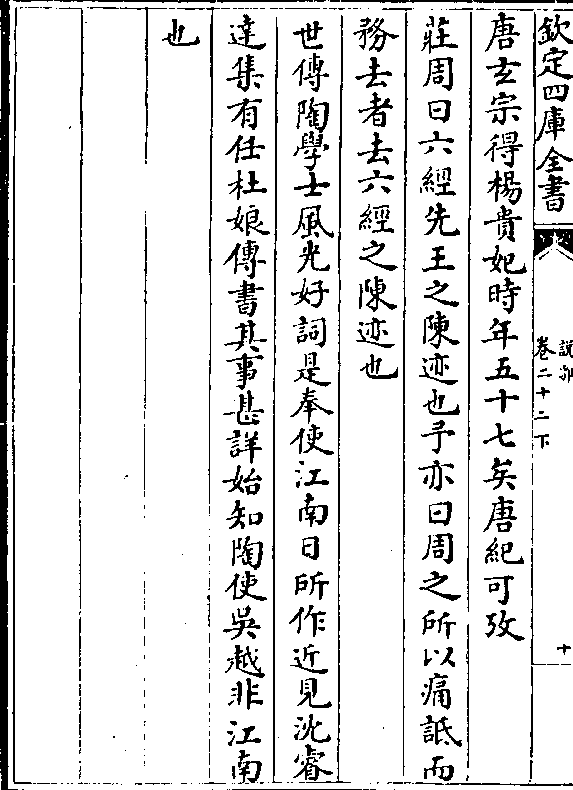 欽定四庫全書
說郛
卷二十二下
十
唐玄宗得楊貴妃時年五十七矣唐紀可攷
莊周曰六經先王之陳迹也予亦曰周之所以痛詆而
務去者去六經之陳迹也
世傳陶學士風光好詞是奉使江南日所作近見沈睿
達集有任杜娘傳書其事甚詳始知陶使吳越非江南
也